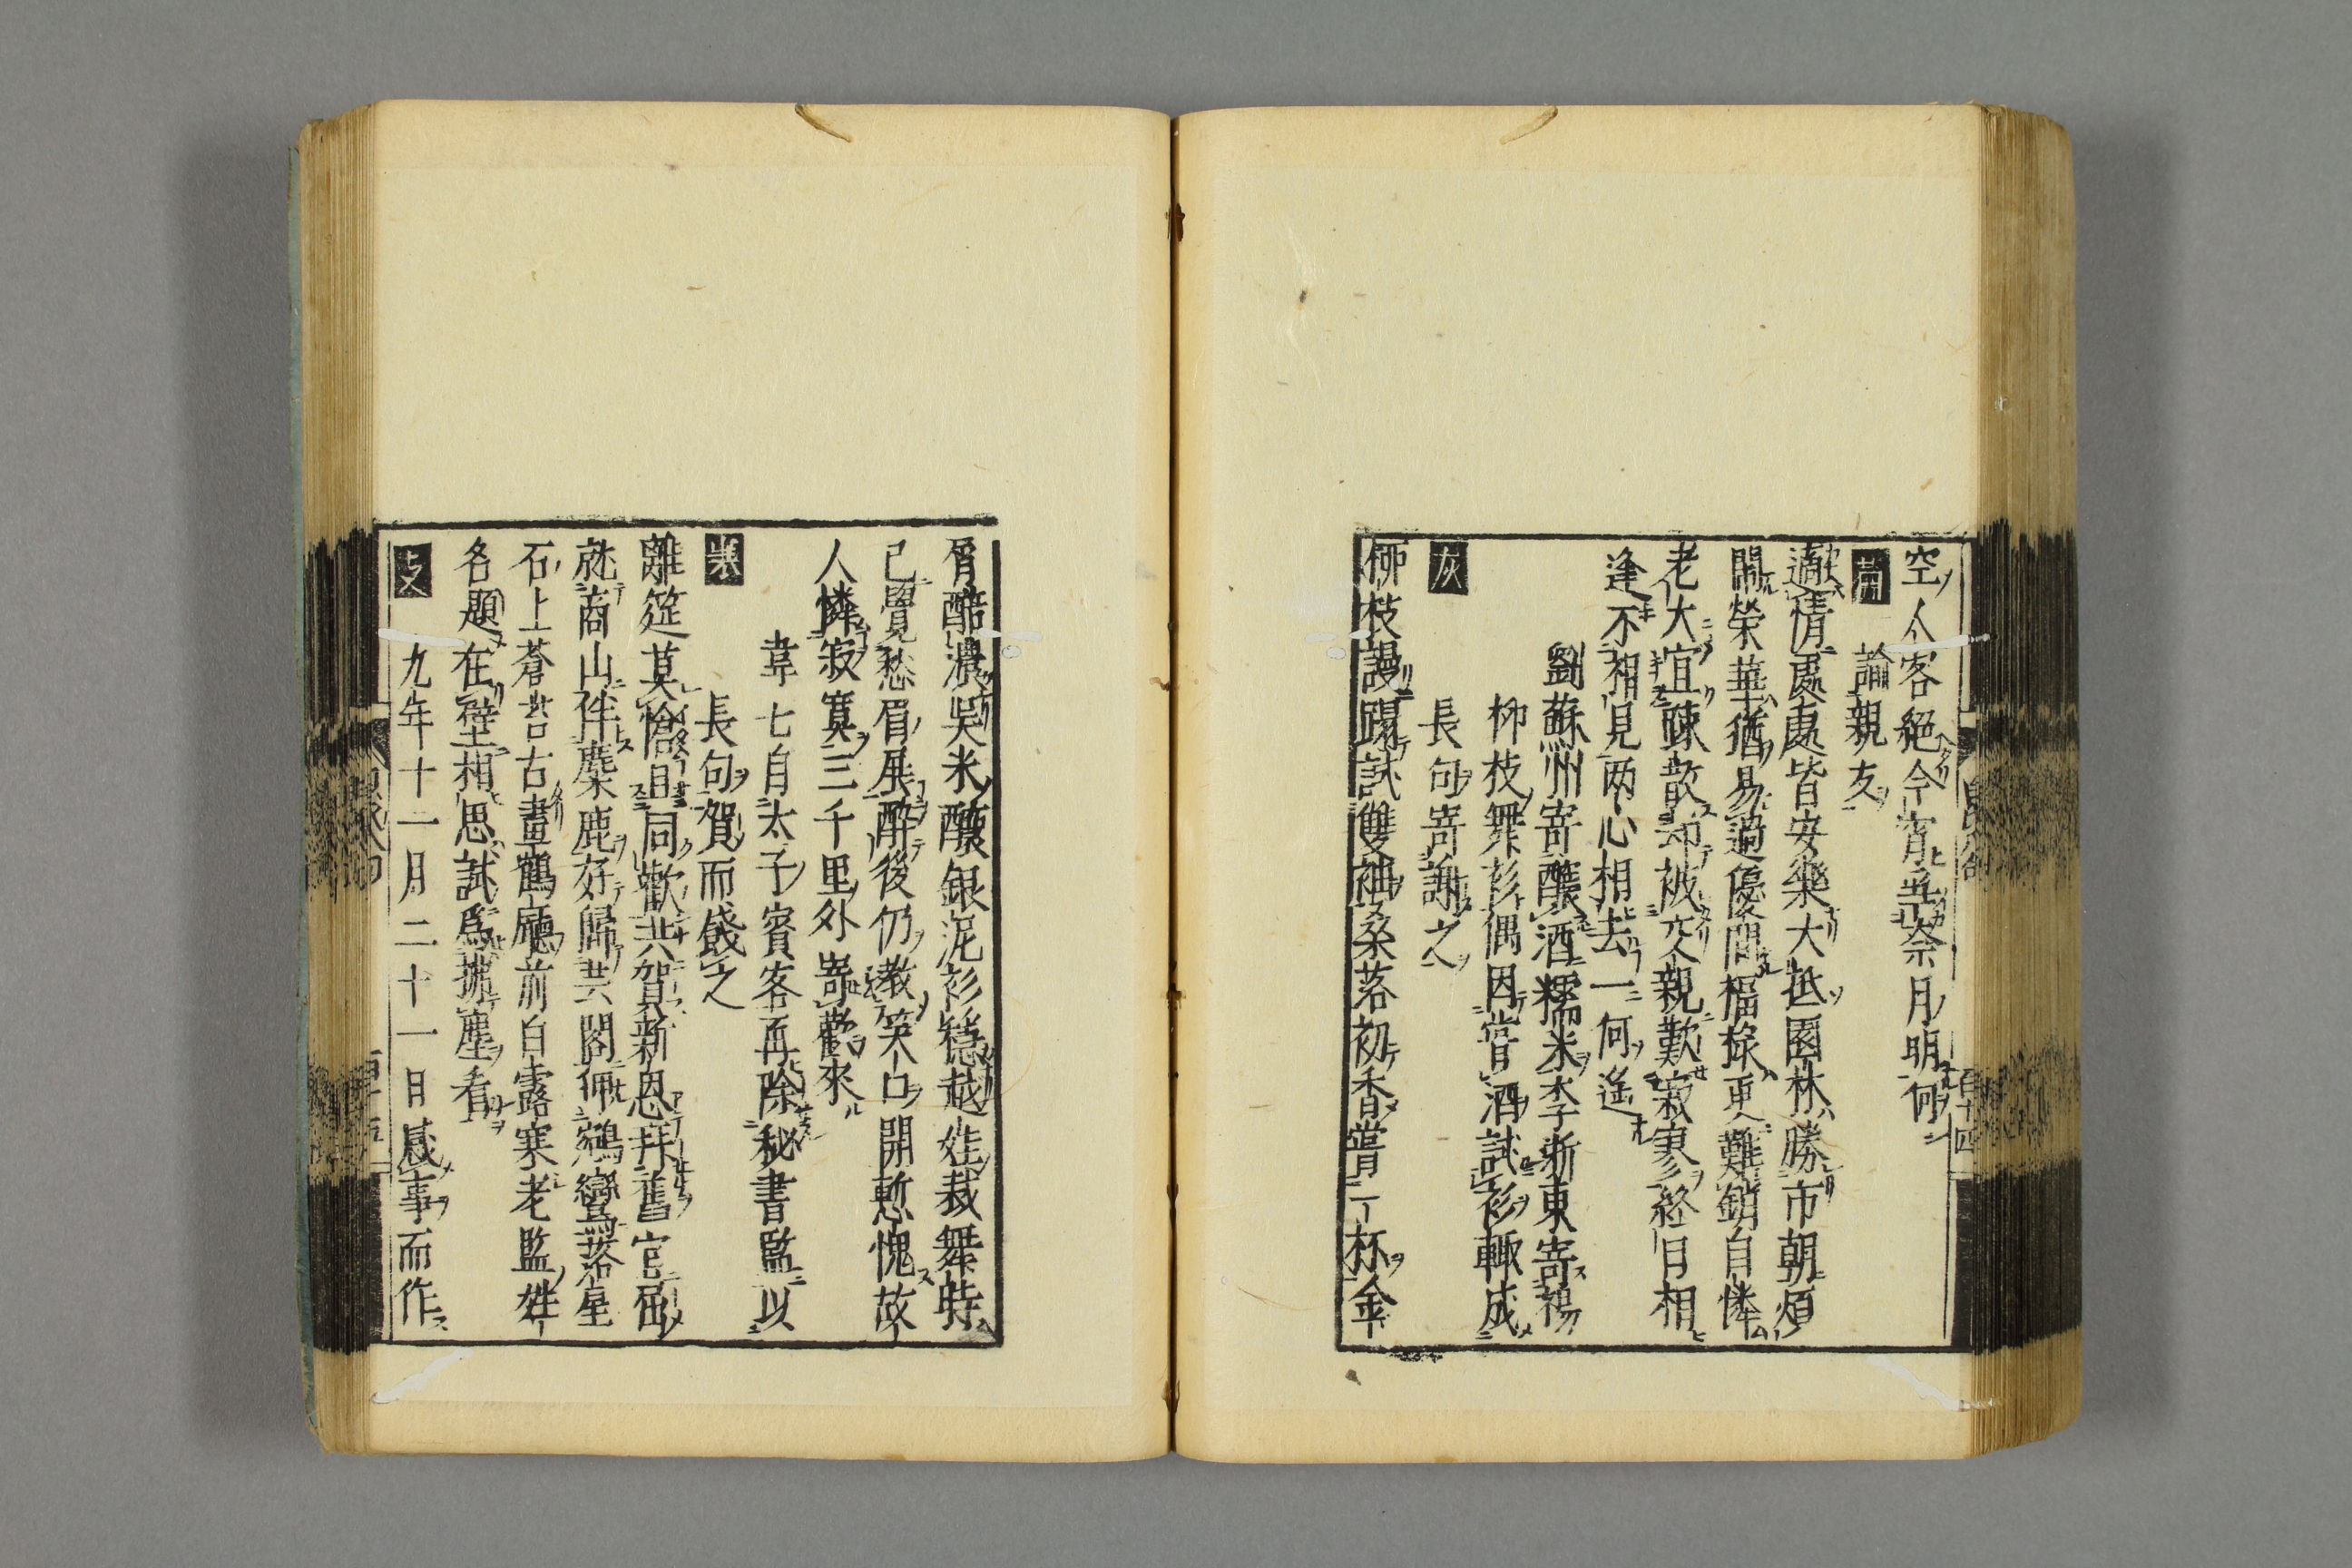 空人客絕今宵無奈月明何
蕭　諭親友
適情處處皆安樂大抵園林勝市朝煩
鬧榮華猶易過優閒福祿更難銷自憐
老大宜疎散却被交親歎寂寥終日相
逢不相見兩心相去一何遙
劉蘇州寄釀酒糯米李浙東寄楊
柳枝舞衫偶因嘗酒試衫輒成
灰　長句寄謝之
柳枝謾蹋試雙袖桑落初香嘗一杯金
屑醅濃吳米釀銀泥衫穩越娃裁舞時
已覺愁眉展醉後仍教笑口開慙愧故
人憐寂寞三千里外寄歡來
韋七自太子賓客再除秘書監以
長句賀而餞之
離筵莫愴且同歡共賀新恩拜舊官屈
就商山伴麋鹿好歸芸閣佩鵷鸞落星
石上蒼苔古畫鶴廳前白露寒老監姓
名題在壁相思試爲拂塵看
九年十一月二十一日感事而作